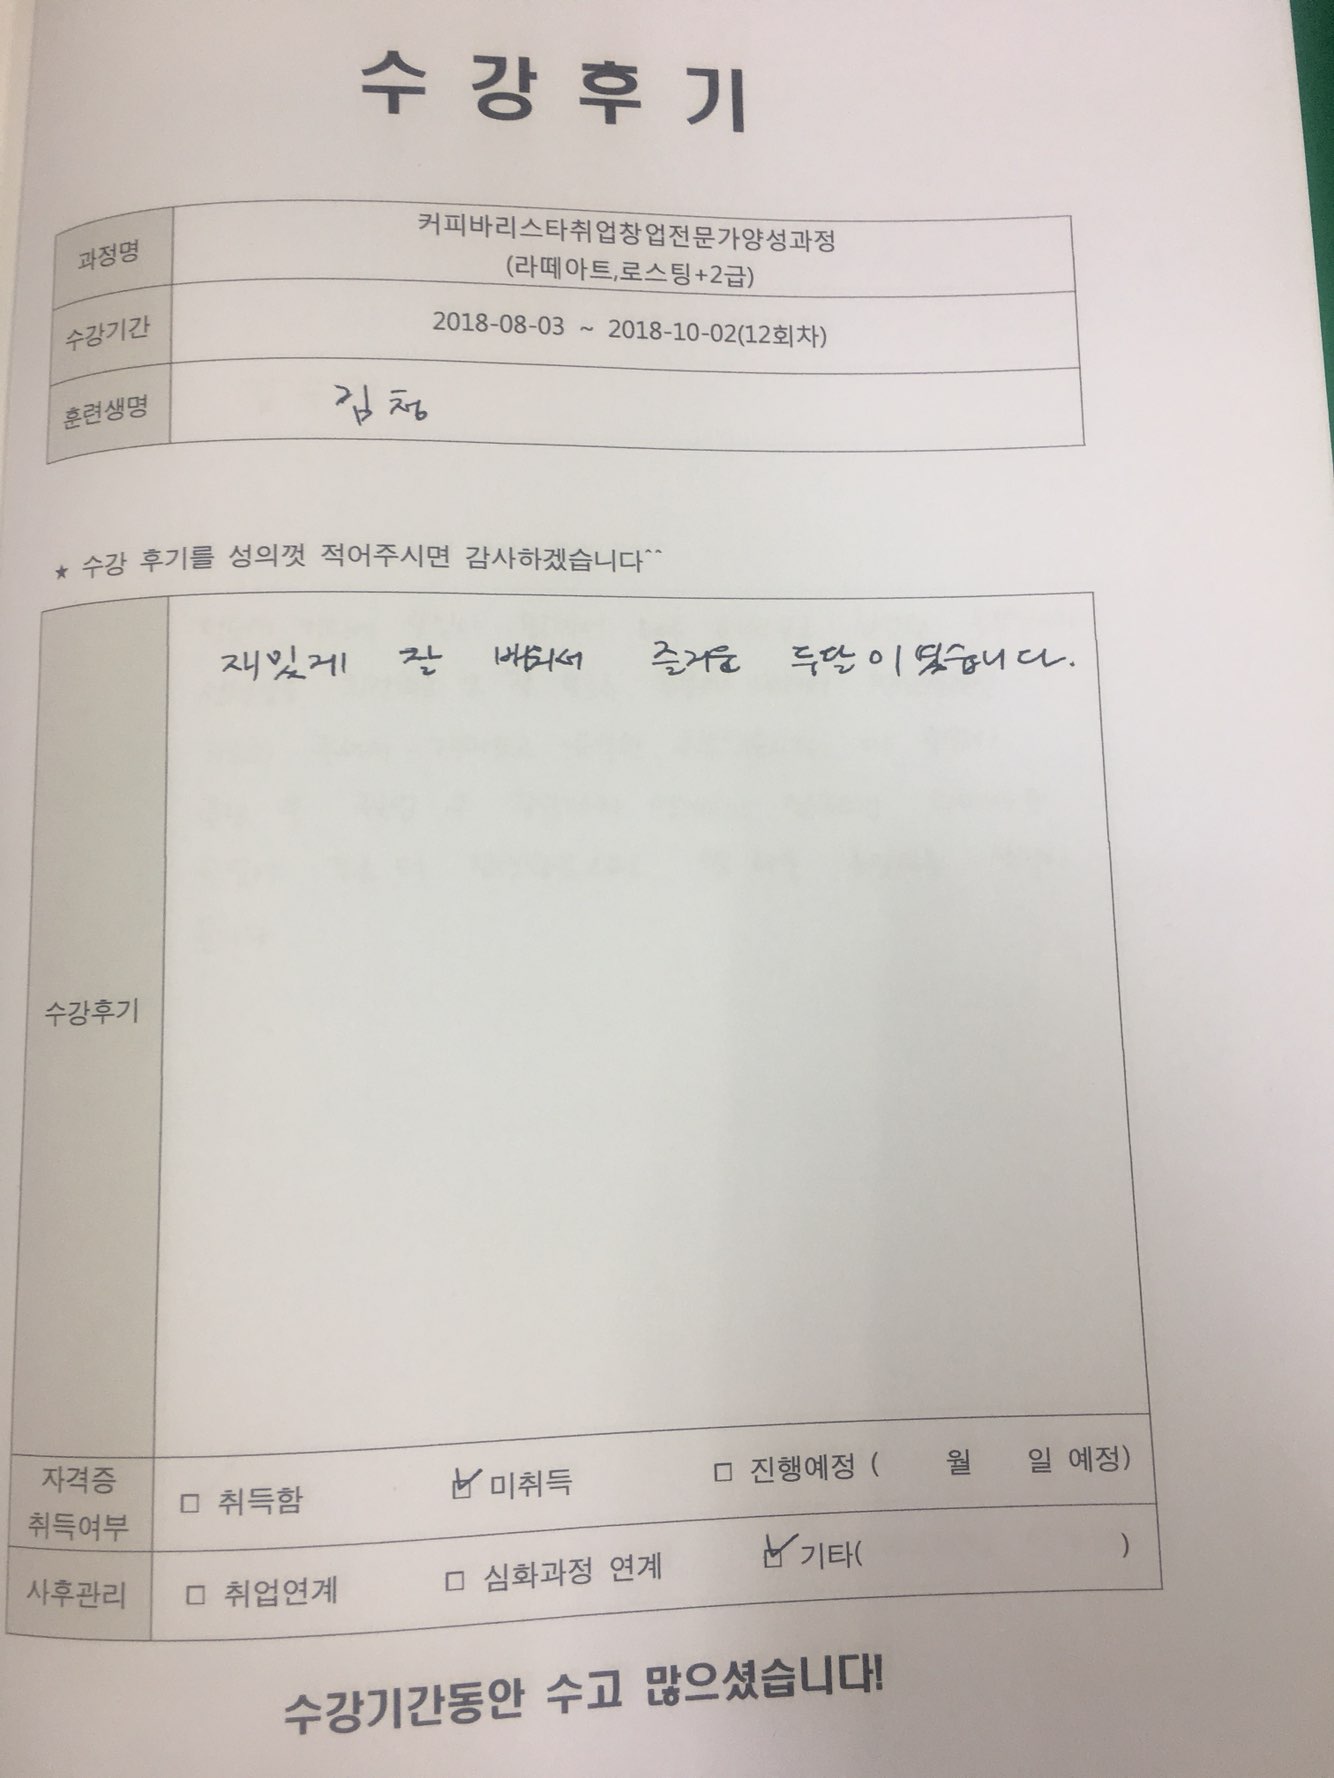 수강후기
과정명
커피바리스타취업창업전문가양성과정
(라떼아트,로스팅+2급)
수강기간
2018-08-03 ~ 2018-10-02(12회차)
훈련생명
김청
★ 수강 후기를 성의껏 적어주시면 감사하겠습니다^^
재밌게 잘 배워서 즐거운 두달이었습니다.
수강후기
자격증
취득여부
□ 취득함 ☑ 미취득 □ 진행예정 ( 월 일 예정)
사후관리
□ 취업연계 □ 심화과정 연계 ☑ 기타( )
수강기간동안 수고 많으셨습니다!